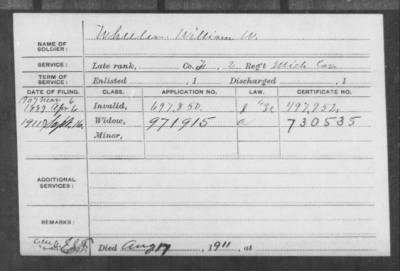 Wheeler William W.
NAME OF SOLDIER:
SERVICE: Late rank, Co. 2 Reg't Mich Cav
TERM OF SERVICE: Enlisted , 1 Discharged , 1
DATE OF FILING. CLASS. APPLICATION NO. LAW. CERTIFICATE NO.
1907 Mar 6
1889 Apr 6 Invalid, 697,850. 497,952.
1911 Sept 16 Widow, 971915 a 730535
Minor,
ADDITIONAL SERVICES:
Died Aug 17 , 1911 , at